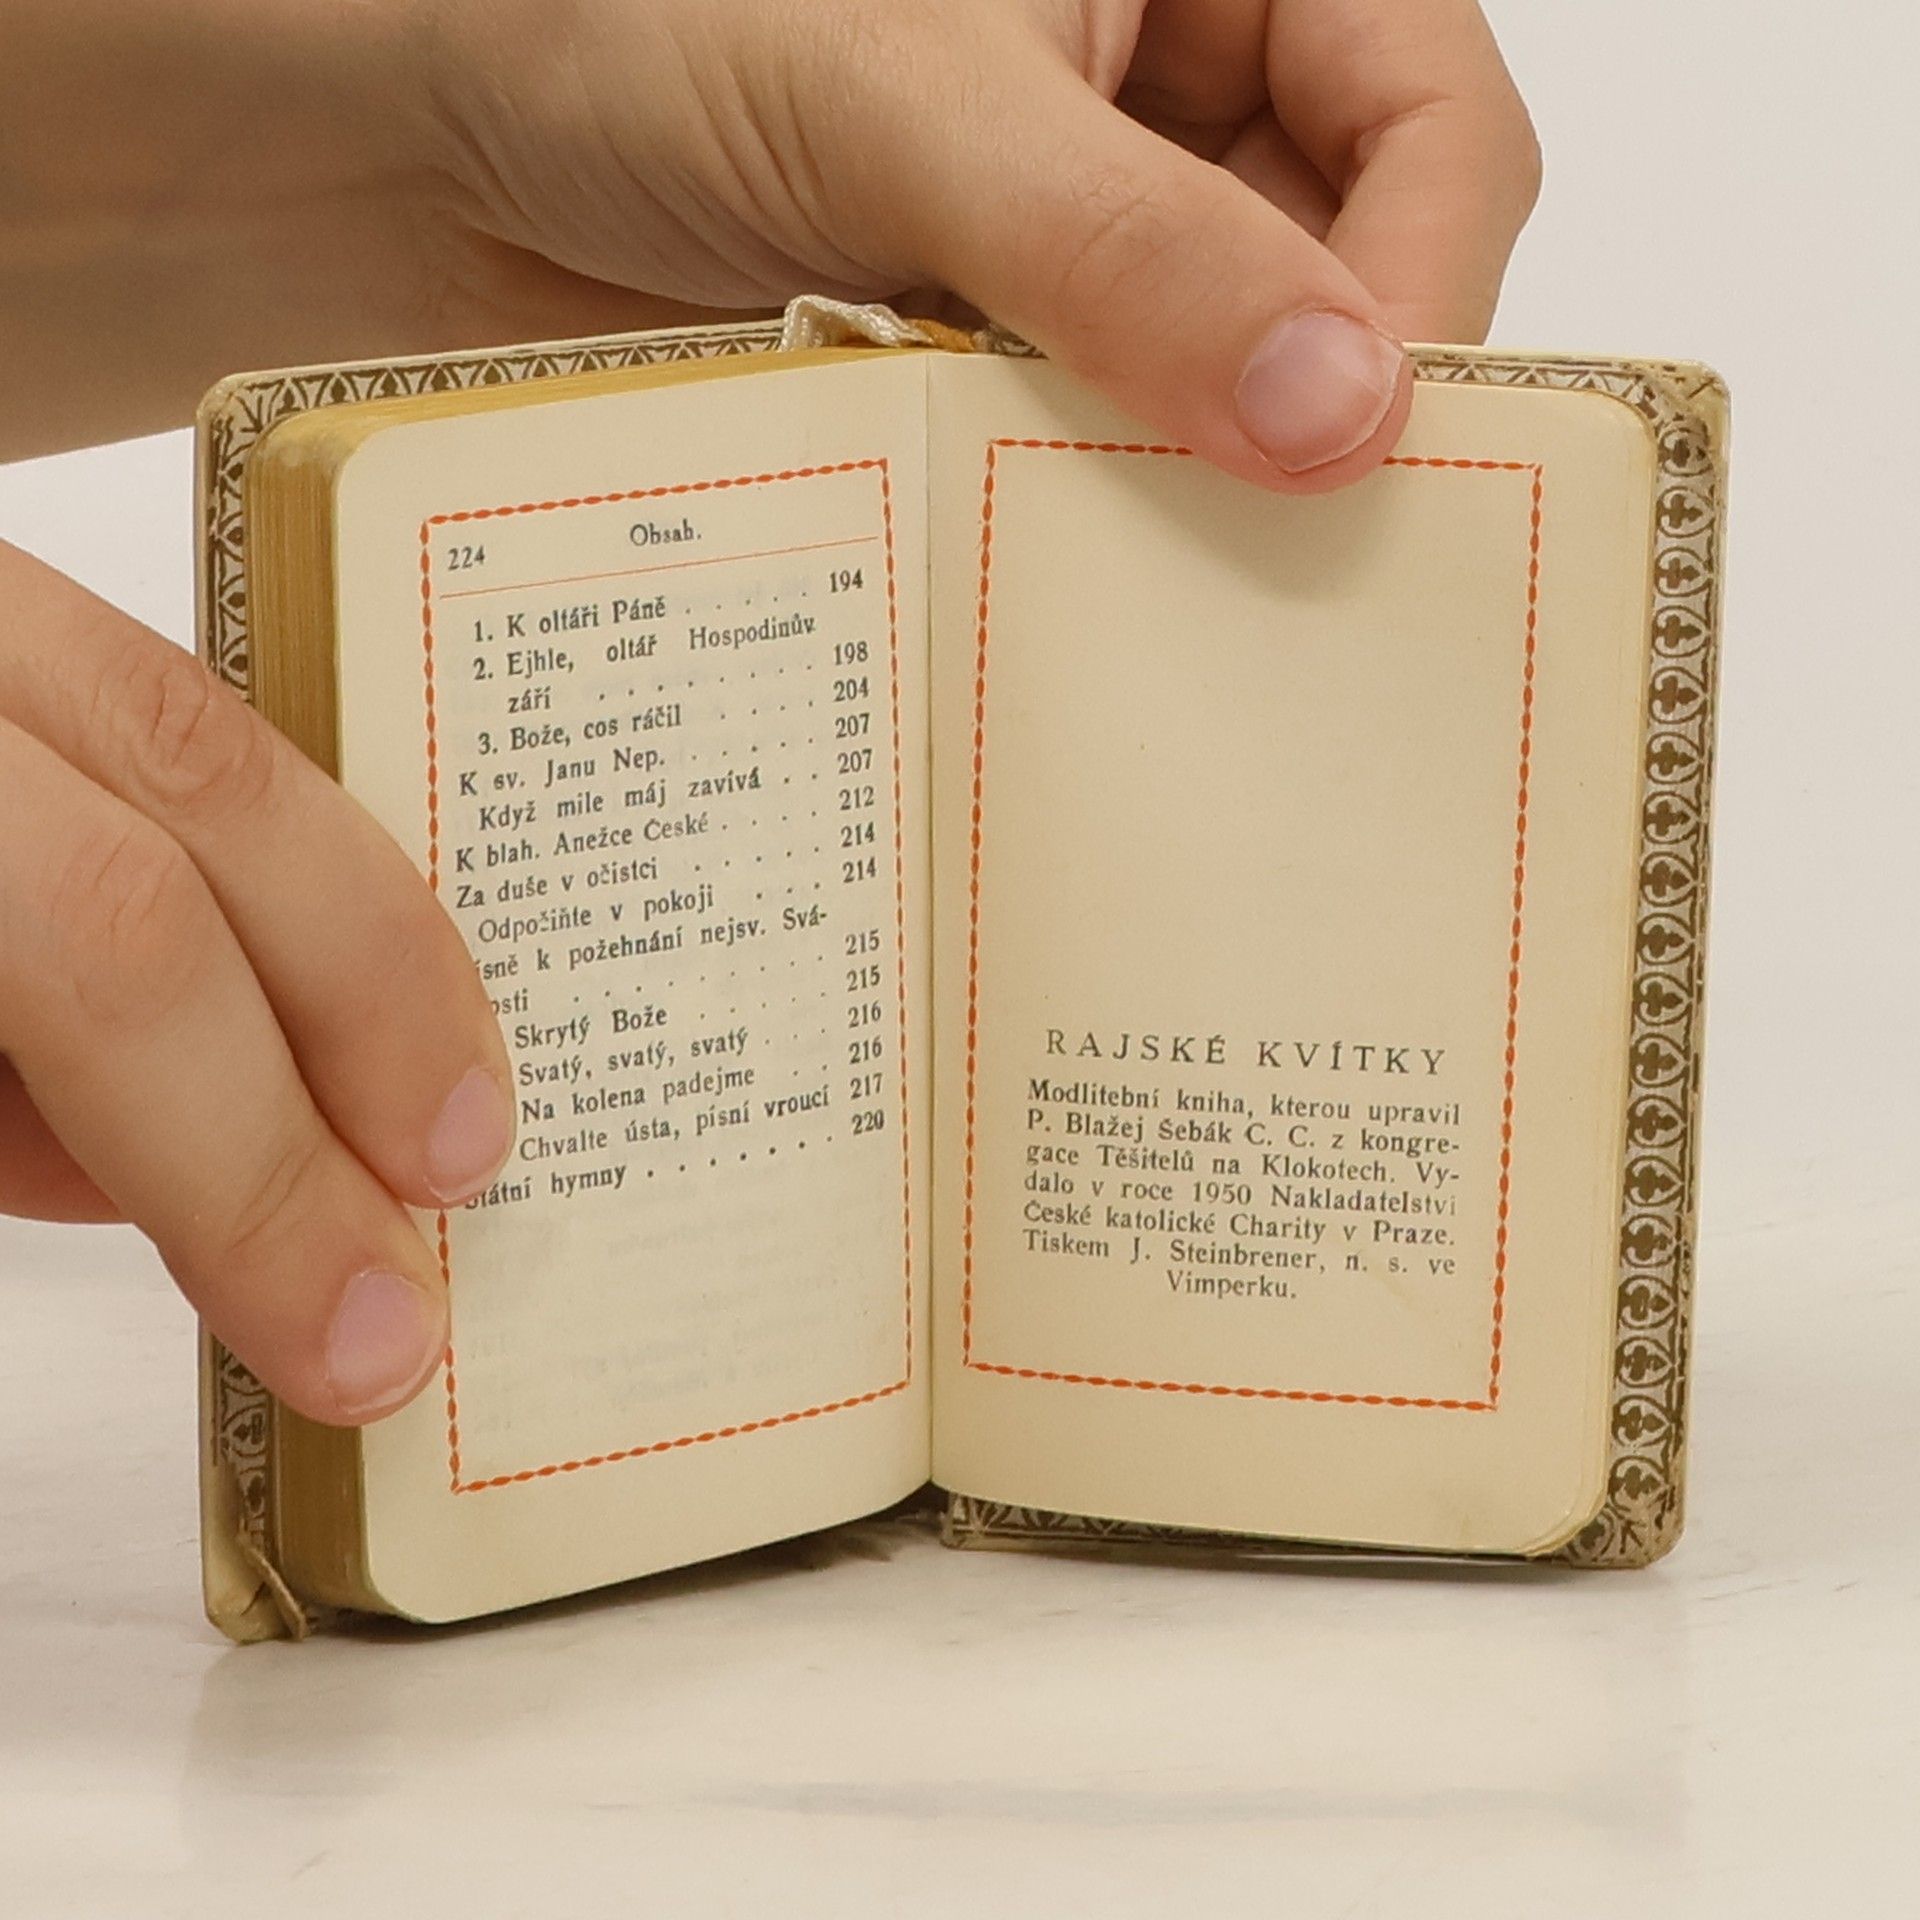 224 Obsah.
1. K oltáři Páně . . . . . 194
2. Ejhle, oltář Hospodinův
září . . . . . . . . 198
3. Bože, cos ráčil . . . . 204
K sv. Janu Nep. . . . . . 207
Když mile máj zavívá . . 207
K blah. Anežce České . . . . 212
Za duše v očistci . . . . . 214
Odpočiňte v pokoji . . . 214
k požehnání nejsv. Svá-
. . . . . . . . 215
Skrytý Bože . . . . . 215
Svatý, svatý, svatý . . . 216
Na kolena padejme . . 216
Chvalte ústa, písní vroucí 217
hymny . . . . . . . 220
RAJSKÉ KVÍTKY
Modlitební kniha, kterou upravil
P. Blažej Šebák C. C. z kongre-
gace Těšitelů na Klokotech. Vy-
dalo v roce 1950 Nakladatelství
České katolické Charity v Praze.
Tiskem J. Steinbrener, n. s. ve
Vimperku.